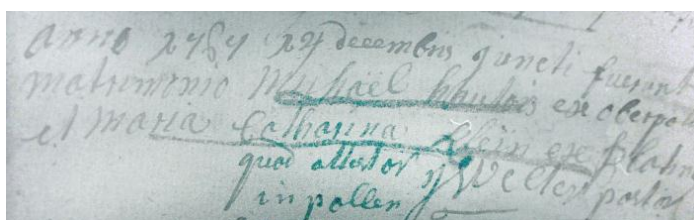 anno 1767 27 decembris juncti fuerunt
matrimonio Michaël ex oberpal
et maria Catharina Klein ex
quod attestor Welter pastor
in pallen